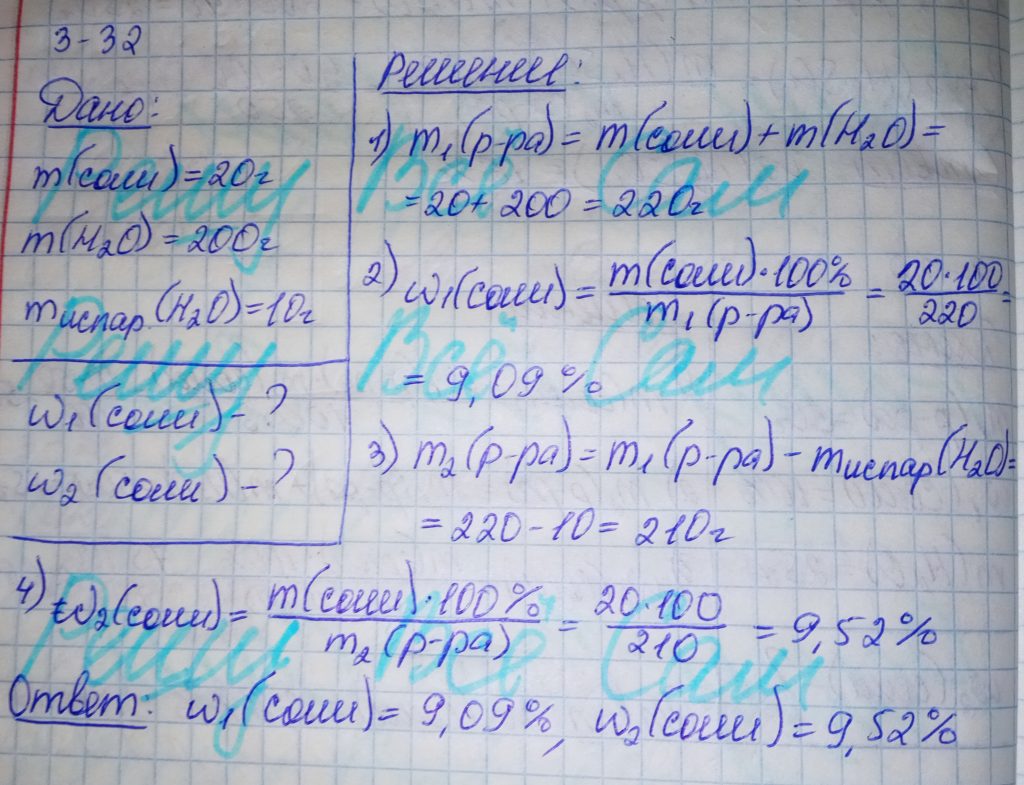 3-32
Дано:
m(соли)=20г
m(H₂O)=200г
mиспар.(H₂O)=10г
w₁(соли)-?
w₂(соли)-?
Решение:
1) m₁(р-ра)= m(соли)+m(H₂O)=
=20+200=220г
2) w₁(соли)= m(соли)·100% / m₁(р-ра) = 20·100 / 220 =
= 9,09%
3) m₂(р-ра)=m₁(р-ра)-mиспар(H₂O)=
=220-10=210г
4) w₂(соли)= m(соли)·100% / m₂(р-ра) = 20·100 / 210 = 9,52%
Ответ: w₁(соли)= 9,09%, w₂(соли)=9,52%
Решу Всё Сам
Решу Всё Сам
Решу Всё Сам